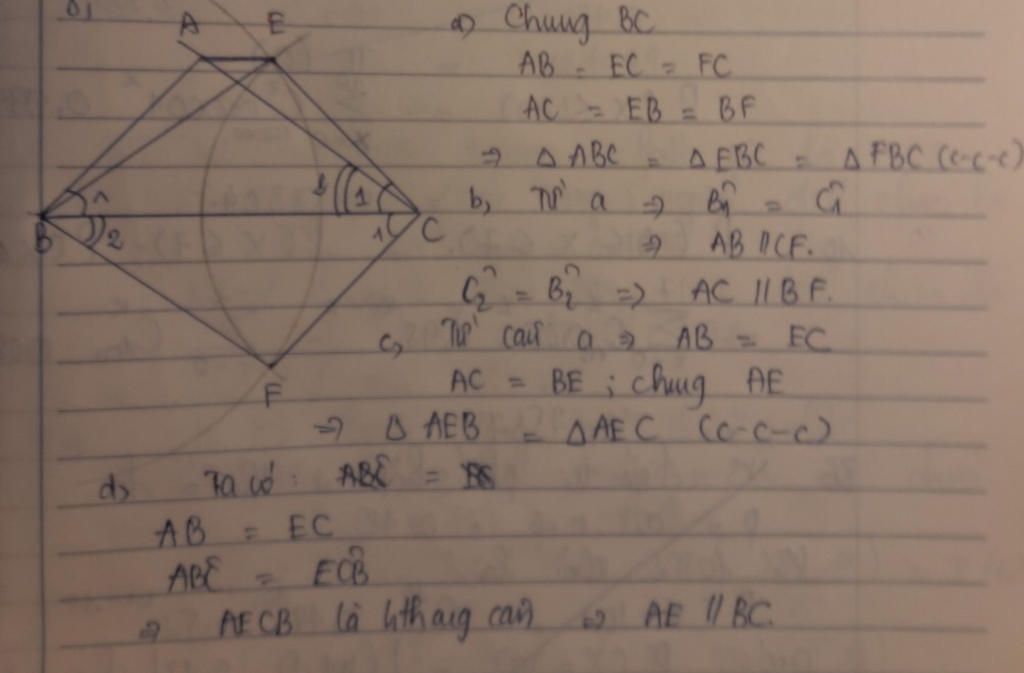 A E
B C
F
1 2 1 1
a) Chung BC
AB = EC = FC
AC = EB = BF
=> Δ ABC = Δ EBC = Δ FBC (c-c-c)
b, Từ a => B̂1 = Ĉ1
=> AB // CF.
Ĉ2 = B̂2 => AC // BF.
c, Từ câu a => AB = EC
AC = BE ; chung AE
=> Δ AEB = Δ AEC (c-c-c)
d, Ta có : ABĈ =
AB = EC
ABĈ = EĈB
=> AECB là hthang cân => AE // BC.